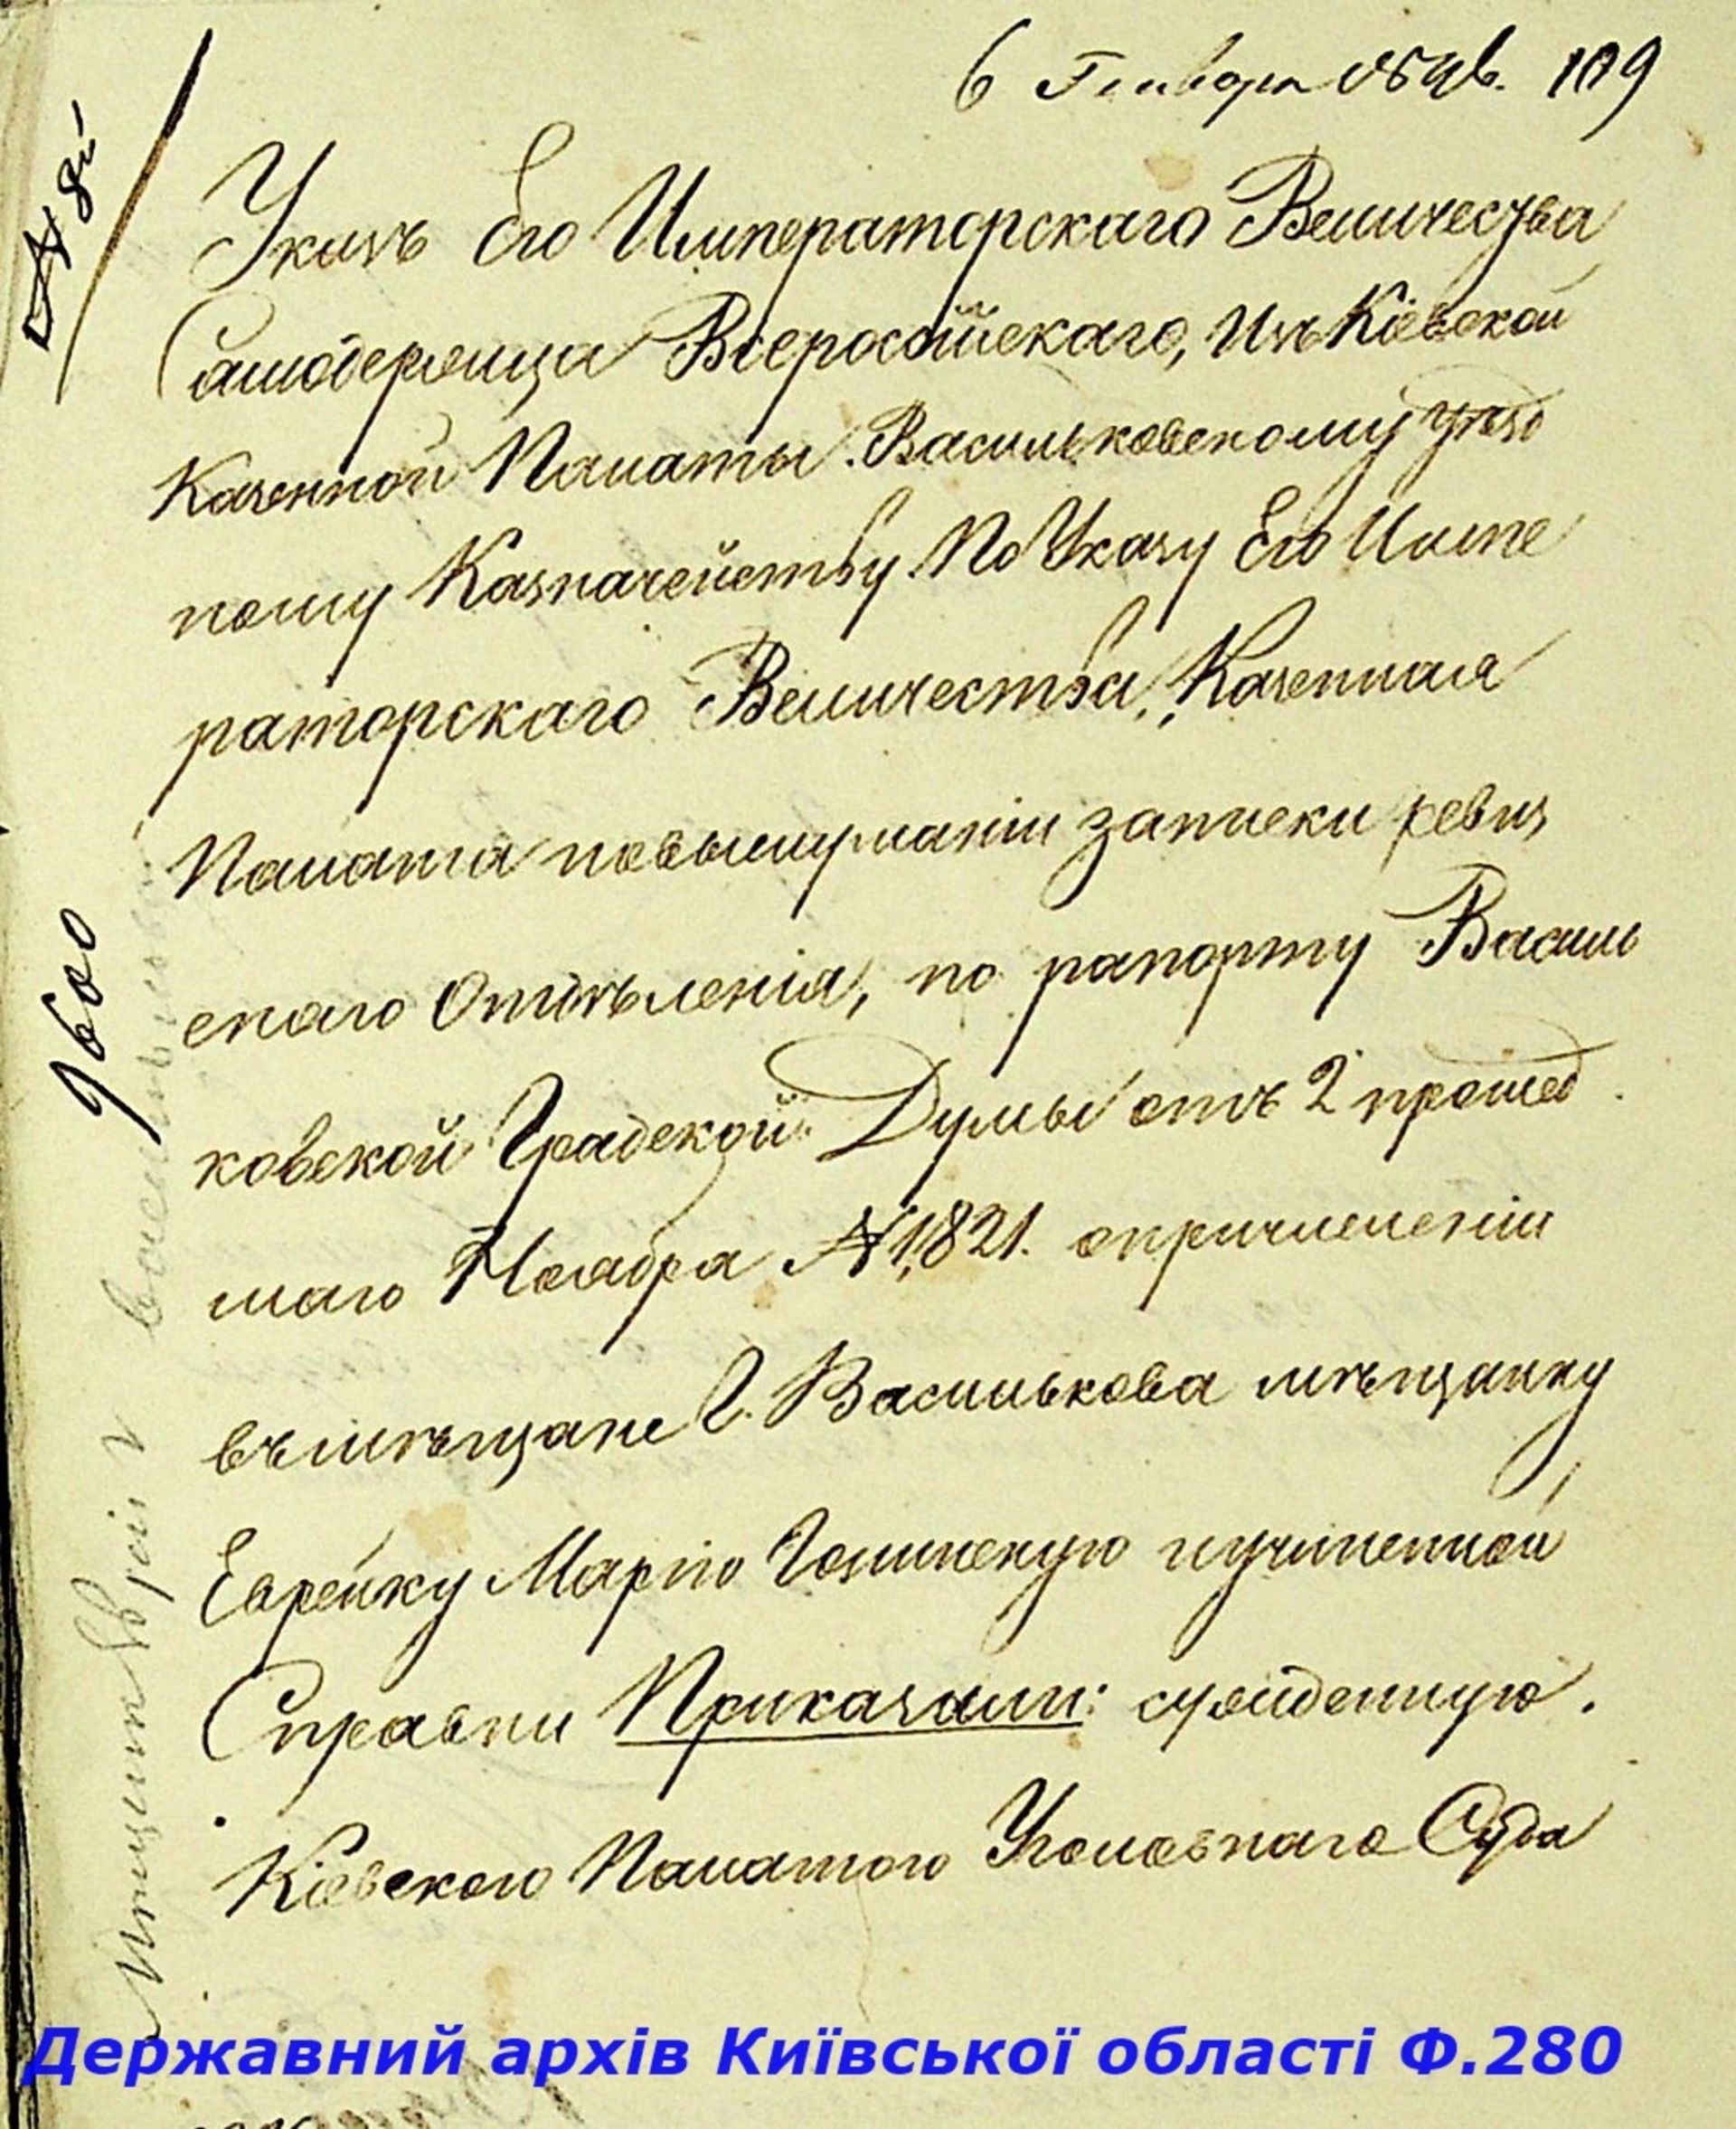 6 Генваря 109
№ 8й
Указъ Его Императорскаго Величества
Самодержца Всероссійскаго, Изъ Кіевской
Казенной Палаты. Васильковскому Уѣзд
ному Казначейству. По Указу Его Импе
раторскаго Величества, Казенная
Палата повыслушаніи записки ревиз
скаго Отдѣленія, по рапорту Василь
ковской Градской Думы отъ 2 прошед
шаго Ноября №1,821. опричисленіи
въмѣщане Г. Василькова мѣщанку
Еврейку Марію изучиненной
Справки Приказали:
Кіевскою Палатою Уголовнаго Суда
9600
Державний архів Київської області Ф.280